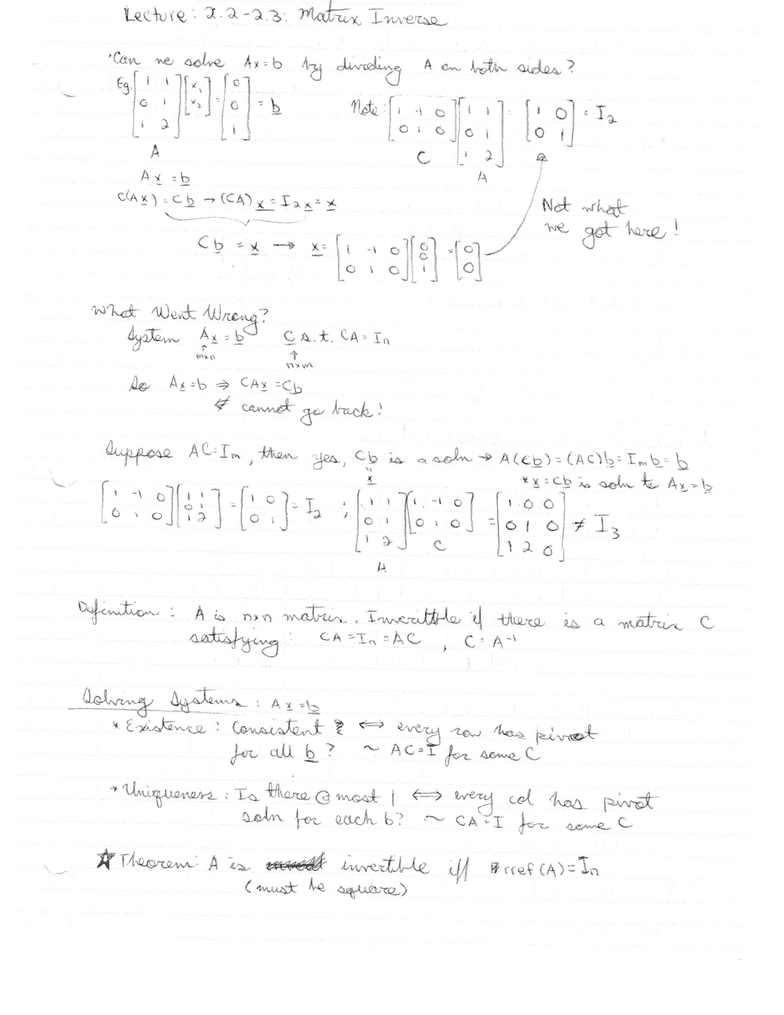 Lecture: 2.2-2.3: Matrix Inverse
·Can we solve Ax=b by dividing A on both sides?
Eg. [1 1; 0 1; 1 2] [x₁; x₂] = [0; 0; 1] = b
A
Note: [1 -1 0; 0 1 0] [1 1; 0 1; 1 2] = [1 0; 0 1] = I₂
C A
Ax = b
C(Ax) = Cb → (CA)x = I₂x = x
Not what
we got here!
Cb = x → x = [1 -1 0; 0 1 0] [0; 0; 1] = [0; 0]
What Went Wrong?
System Ax = b C s.t. CA = In
↑ mxn ↑ nxm
So Ax=b ⇒ CAx = Cb
⇍ cannot go back!
Suppose AC=Im, then yes, Cb is a soln → A(Cb) = (AC)b = Imb = b
" x
*x=Cb is soln to Ax=b
[1 -1 0; 0 1 0] [1 1; 0 1; 1 2] = [1 0; 0 1] = I₂ ; [1 1; 0 1; 1 2] [1 -1 0; 0 1 0] = [1 0 0; 0 1 0; 1 2 0] ≠ I₃
A C
Definition: A is nxn matrix. Inverittble if there is a matrix C
satisfying: CA = In = AC , C = A⁻¹
Solving Systems: Ax=b
* Existence: Consistent ⟺ every row has pivot
for all b? ~ AC=I for some C
* Uniqueness: Is there @ most 1 ⟺ every col has pivot
soln for each b? ~ CA=I for some C
☆ Theorem: A is invertible iff rref(A)=In
(must be square)